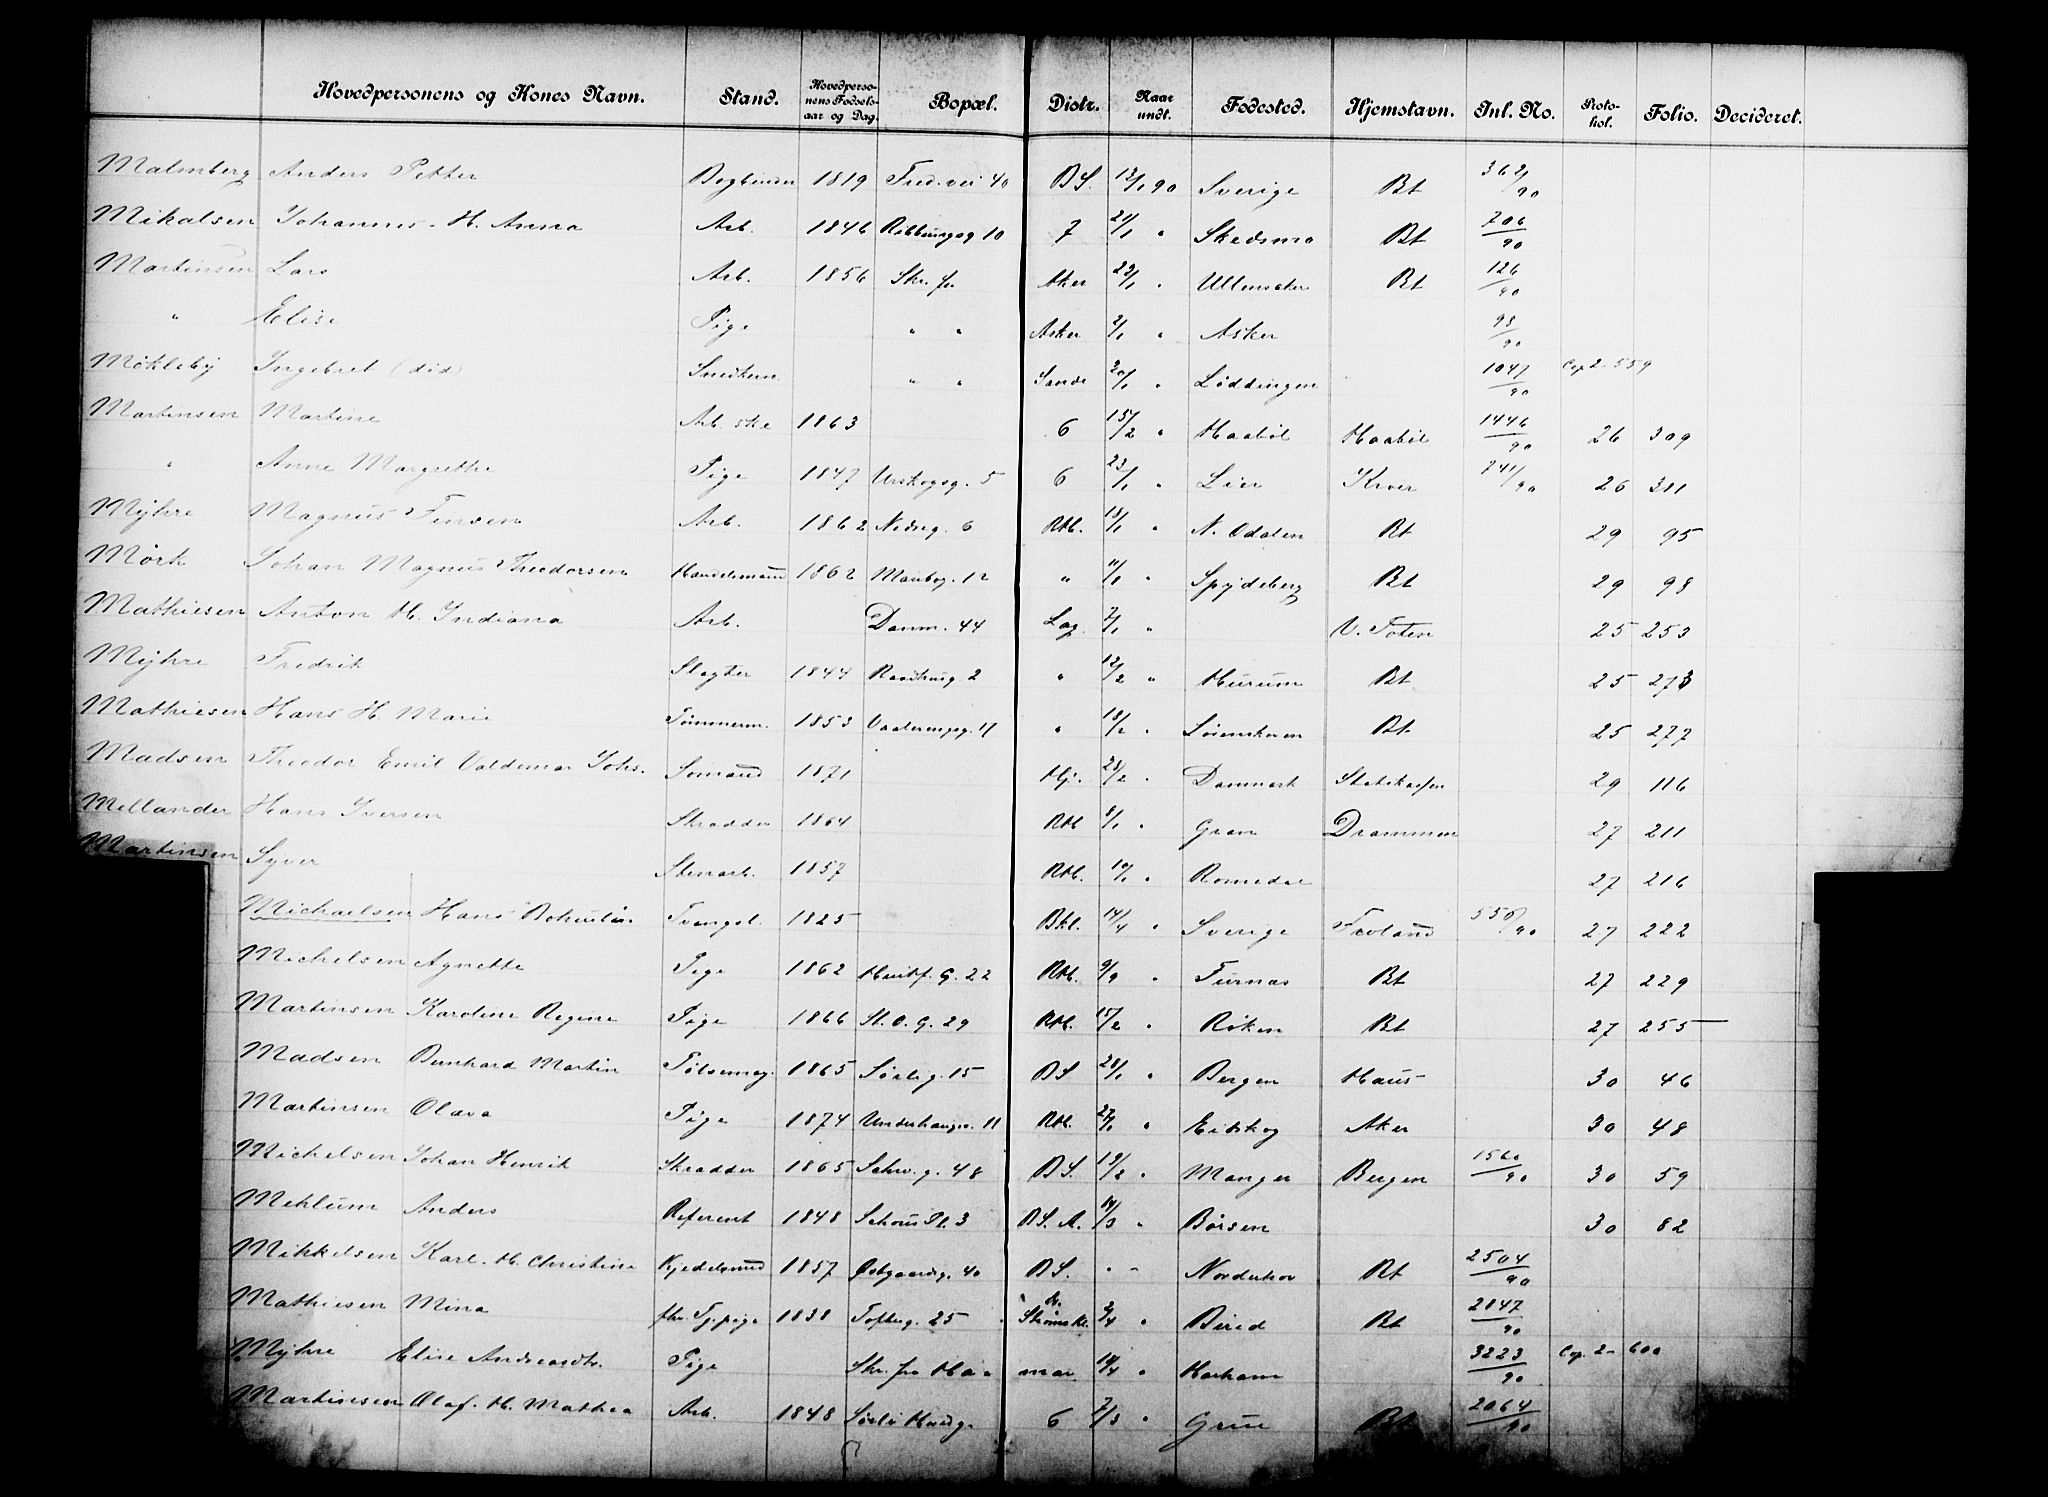 Hovedpersonens og Kones Navn. Stand. Hovedpersonens Fødselsaar og Dag. Bopæl. Distr. Naar undt. Fødested. Hjemstavn. Inl. No. Protokol. Folio. Decideret.
Malmberg Anders Petter 1819 Fred. vei 40 B S. 90 Sverige Bt 362/90
Mikalsen Johannes. H. Anna Arb. 1846 10 7 21/1 " Skedsmo Bt 706/90
Martinsen Lars Arb. 1856 Skr. fr Aker 1 " Ullensaker Bt 126/90
" Elise Pige " " Asker 2/1 " Asker 93/90
Mökleby Ingebret (død) Snedkerm. " " Sande 20/1 " Löddingen 1047/90 Cop. 2 - 559
Martinsen Martine Arb. ske 1863 6 15/2 " Haaböl Haaböl 1446/90 26 309
" Anne Margrethe Pige 1847 Urskogsg. 5 6 23/1 " Lier Kver 741/90 26 311
Myhre Magnus Jensen Arb. 1862 Nedreg. 6 Rtb. 13/1 " N. Odalen Bt 29 95
Mörk Johan Magnus Theodorsen Handelsmand 1862 Maribog. 12 " 11/1 " Spydeberg Bt 29 98
Mathiesen Anton H. Indiana Arb. Damm. 44 Lag. 7/1 " V. Toten 25 253
Myhre Fredrik Slagter 1844 Raadhusg 2 " 12/2 " Hurum Bt 25 273
Mathiesen Hans H. Marie Tömmerm. 1853 Vaalerengg. 11 " 18/2 " Löienskoven Bt 25 277
Madsen Theodor Emil Valdemar Johs. Sömand 1871 Hj. 28/2 " Danmark Statskassen 29 116
Mellander Hans Iversen Skrædder 1864 Rtb 8/1 " Gran Drammen 27 211
Martinsen Syver Stenarb. 1857 Rtb. 10/1 " Romedal 27 216
Michaelsen Hans Tvangsl. 1825 Bkl. 14/4 " Sverige Froland 550/90 27 222
Michelsen Agnette Pige 1862 Huitf. G. 22 Rtb. 9/9 " Furnæs Bt 27 229
Martinsen Karoline Regine Pige 1866 St. O. G. 29 Rtb. 15/2 " Röken Bt 27 255
Madsen Bernhard Martin Pölsemag. 1865 Sörlig. 15 B S 28/1 " Bergen Haus 30 46
Martinsen Olava Pige 1874 Underhaugsv. 11 Rtb. 27/1 " Eidskog Aker 30 48
Michelsen Johan Henrik Skrædder 1865 Schw. g. 48 B S. 19/2 " Manger Bergen 1560/90 30 59
Mehlum Anders Referent 1848 Schous Pl. 3 B S. A. 14/3 " Börsen 30 82
Mikkelsen Karl. H. Christine Kjedelsmed 1857 Östgaardsg. 40 B S. " " Norderhov Bt 2504/90
Mathiesen Mina fhv. Tj.pige 1838 Toftesg. 25 Strömskl. 3/4 " Biered Bt 2847/90
Myhre Elise Andreasdtr. Pige Skr. fra Hamar 14/4 " Harham 3223/90 Cop. 2 - 600
Martinsen Olaf. H. Mathea Arb. 1848 6 7/3 " Grue Bt 2064/90